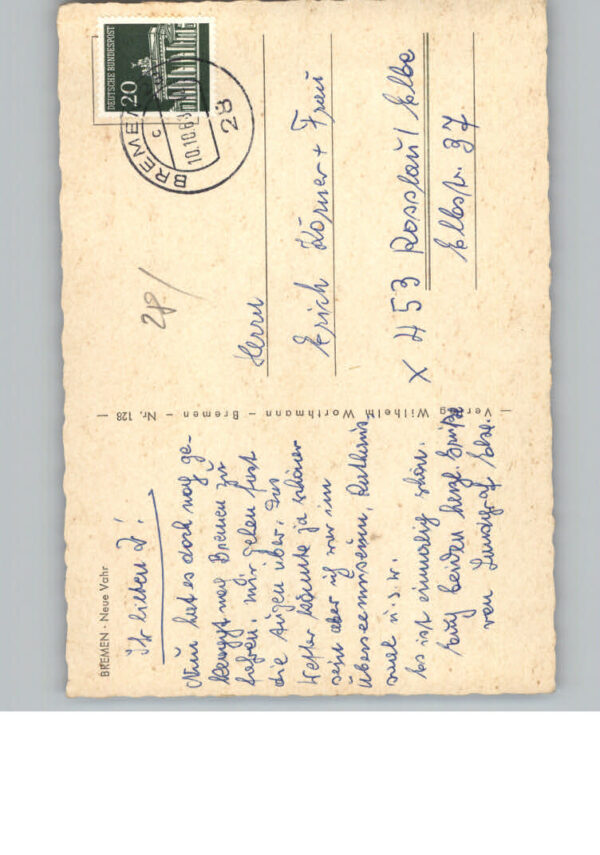 BREMEN - Neue Vahr
Ihr lieben 2!
Nun hat es doch noch ge-
klappt nach Bremen zu
fahren. Mir gehen fast
die Augen über. Das
Wetter könnte ja schöner
sein aber ich war im
Überseemuseum, Rathaus
u.s.w.
Es ist einmalig schön.
Euch beiden herzl. Grüße
von
— Verlag Wilhelm Worthmann – Bremen – Nr. 128 —
28/
DEUTSCHE BUNDESPOST
20
BREMEN
28
c
10.10.68
Herrn
Erich Körner + Frau
X 453 Rosslau/Elbe
Elbstr. 37